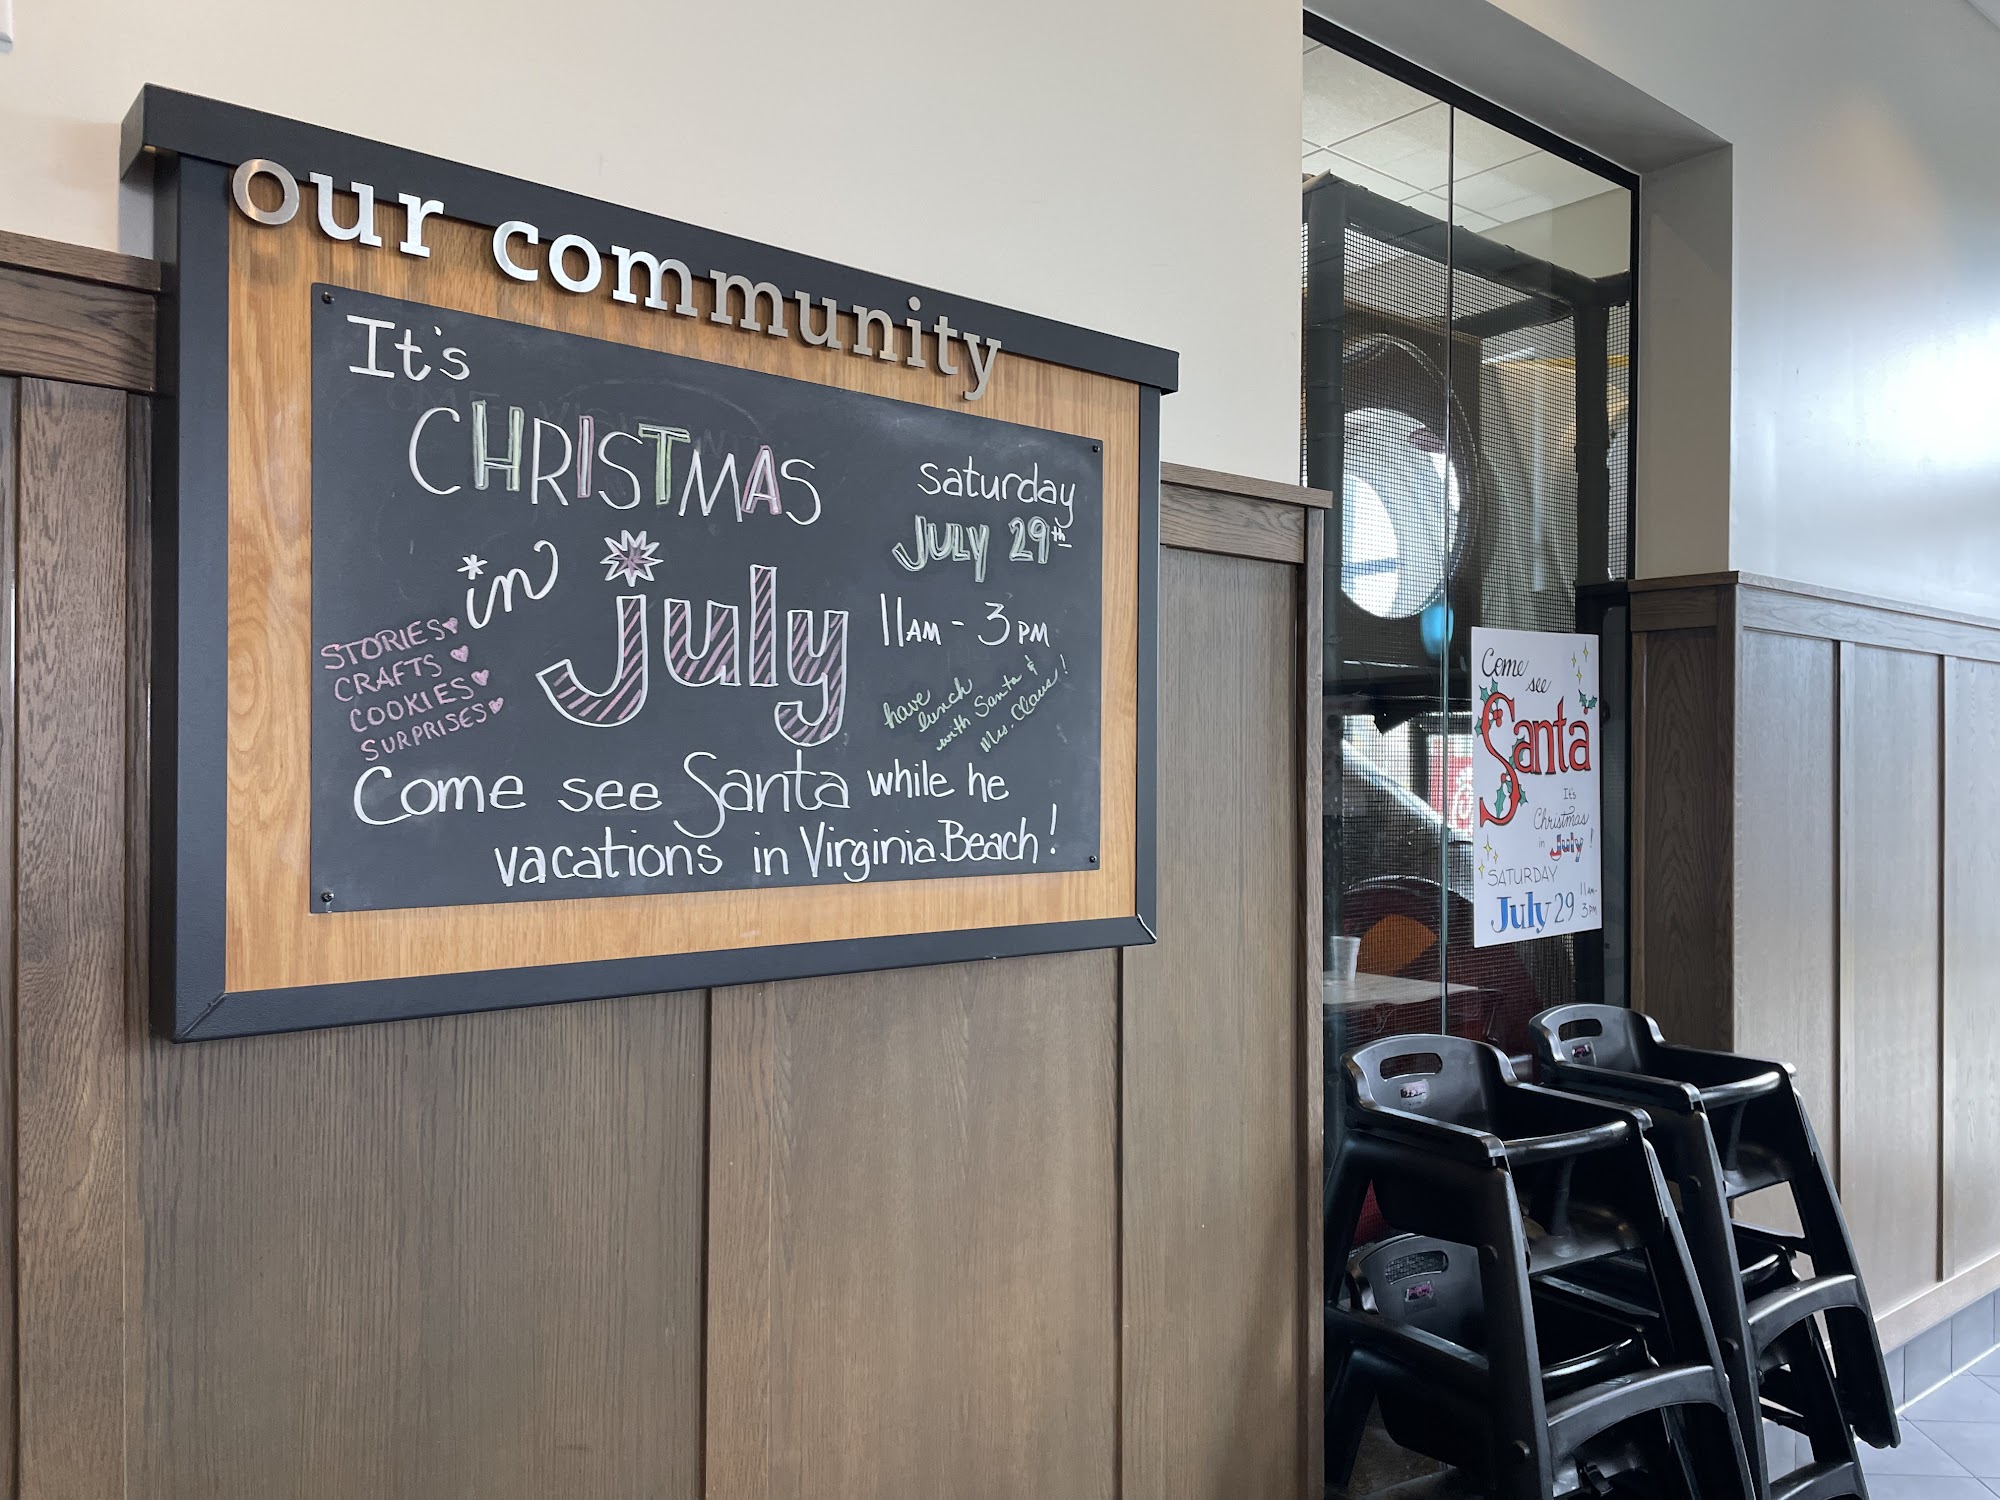 our community
It's
CHRISTMAS
in
july
STORIES
CRAFTS
COOKIES
SURPRISES
saturday
JULY 29th
11AM - 3PM
have
lunch
with Santa &
Mrs. Claus!
Come see Santa while he
vacations in Virginia Beach!
Come
see
Santa
It's
Christmas
in July!
SATURDAY
July 29 11AM-
3PM